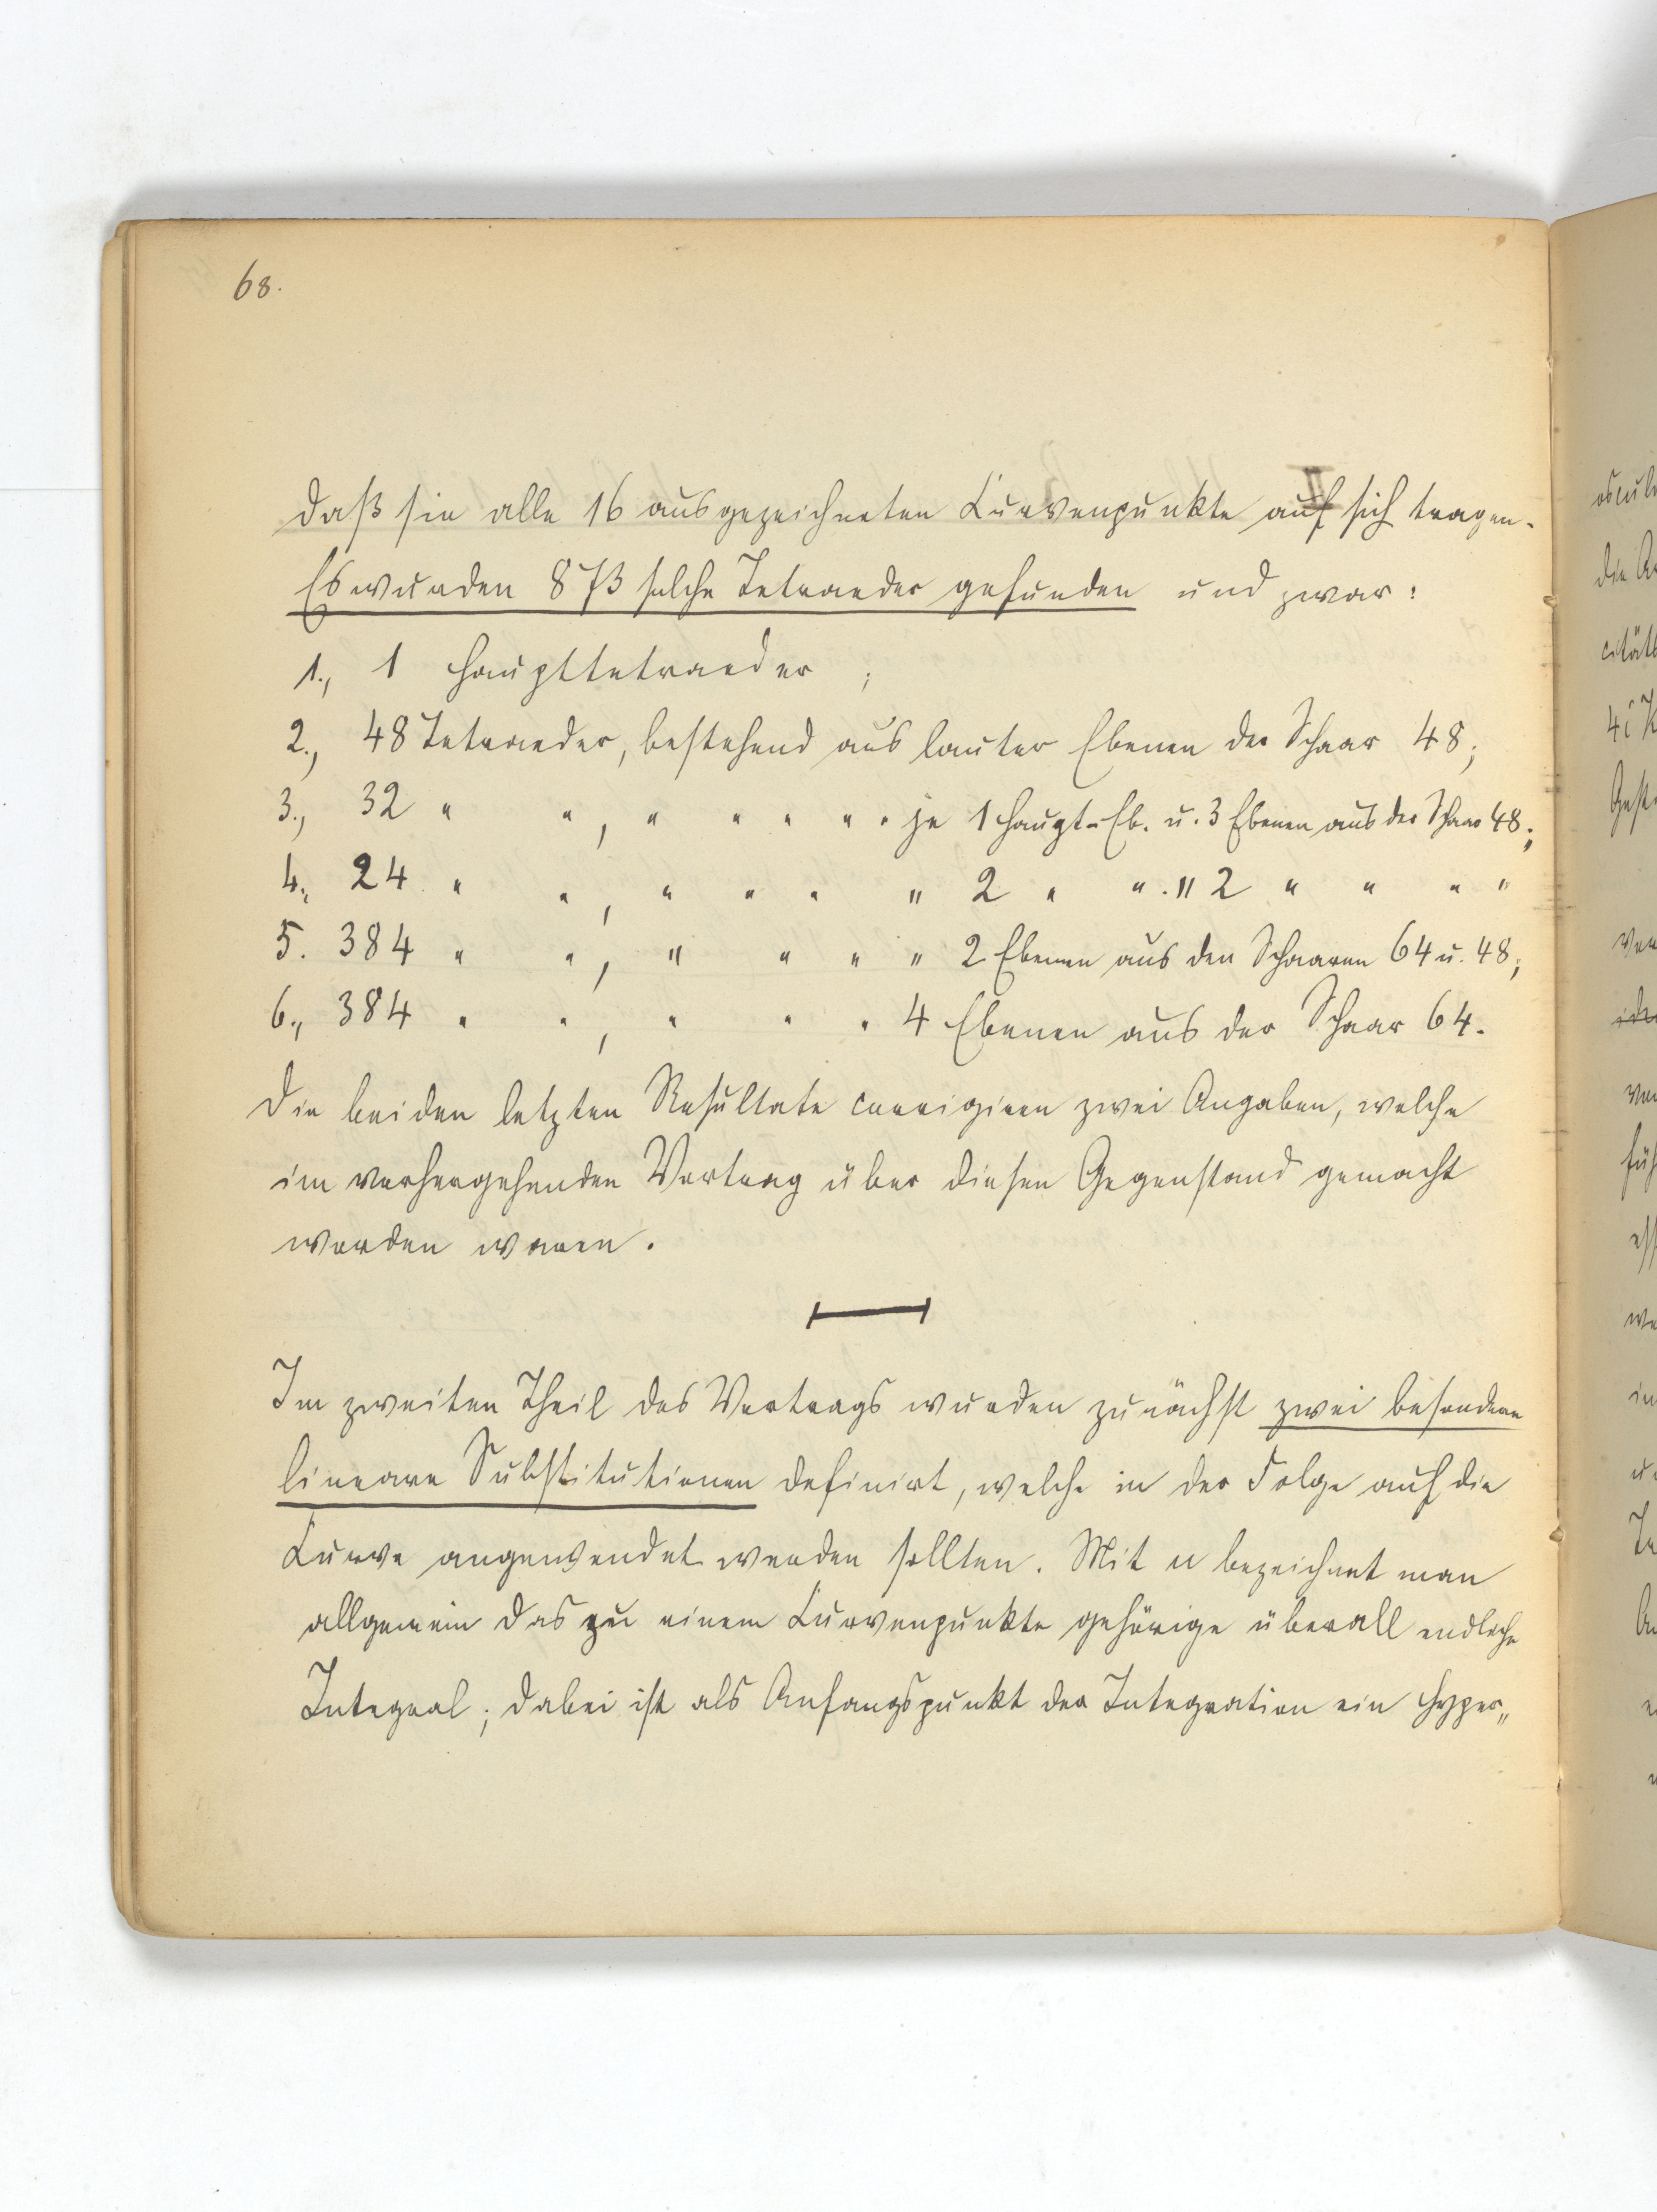 68.
daß sie alle 16 ausgezeichneten Curvenpunkte auf sich tragen.
Es wurden 873 solche Tetraeder gefunden und zwar:
1., 1 Haupttetraeder ;
2., 48 Tetraeder, bestehend aus lauter Ebenen der Schaar 48;
3., 32 " " , " " " " " je 1 Haupt-Eb. u. 3 Ebenen aus der Schaar 48;
4., 24 " " , " " " " 2 " " . " 2 " " " "
5. 384 " " , " " " " 2 Ebenen aus den Schaaren 64 u. 48;
6., 384 " " , " " " 4 Ebenen aus der Schaar 64.
Die beiden letzten Resultate corrigiren zwei Angaben, welche
im vorhergehenden Vortrag über diesen Gegenstand gemacht
worden waren.
Im zweiten Theil des Vortrags wurden zunächst zwei besondere
lineare Substitutionen definirt, welche in der Folge auf die
Curve angewendet werden sollten. Mit u bezeichnet man
allgemein das zu einem Curvenpunkte gehörige überall endliche
Integral; dabei ist als Anfangspunkt der Integration ein Hyper„